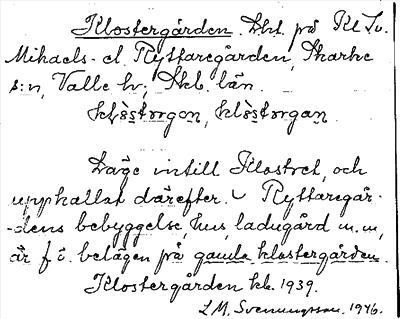 Klostergården. Lht. på Kl. Sv.
Mihaels- el. Ryttaregården, Skarke
s:n, Valle hd; Skb. län.
klòstorgon, klòstorgan.
Låge intill Klostret, och
uppkallat därefter. Ryttaregår-
-dens bebyggelse, hus, ladugård m.m,
är f.ö. belägen på gamla klostergården.
Klostergården kb. 1939.
L.M. Svenungsson. 1946.